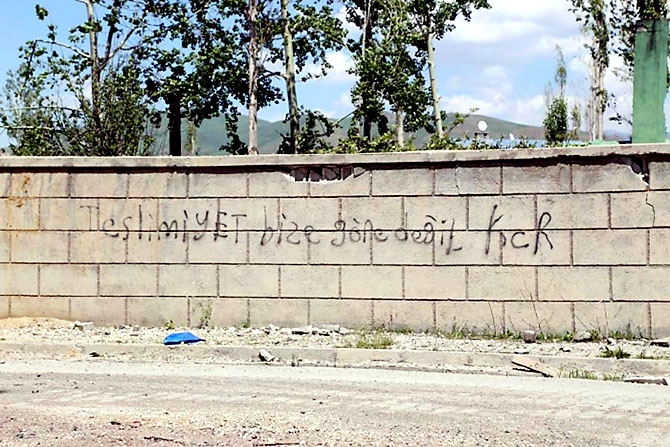 TesliMiYET bize göre değil KıcR